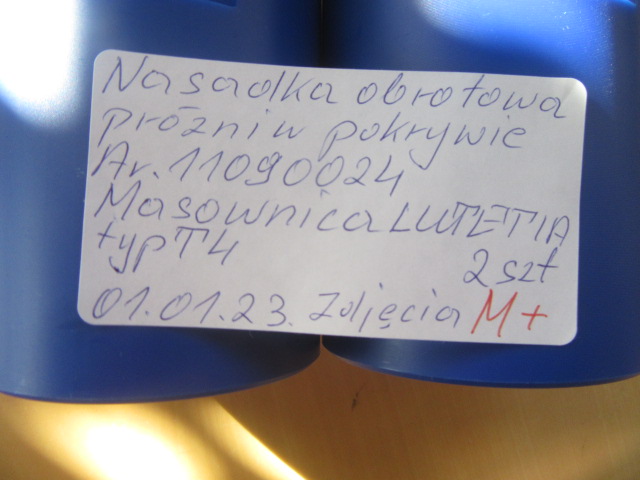 Nasadka obrotowa
próżni w pokrywie
Nr. 11090024
Masownica LUTETIA
typ T4
2 szt
01.01.23. Zdjęcia M+